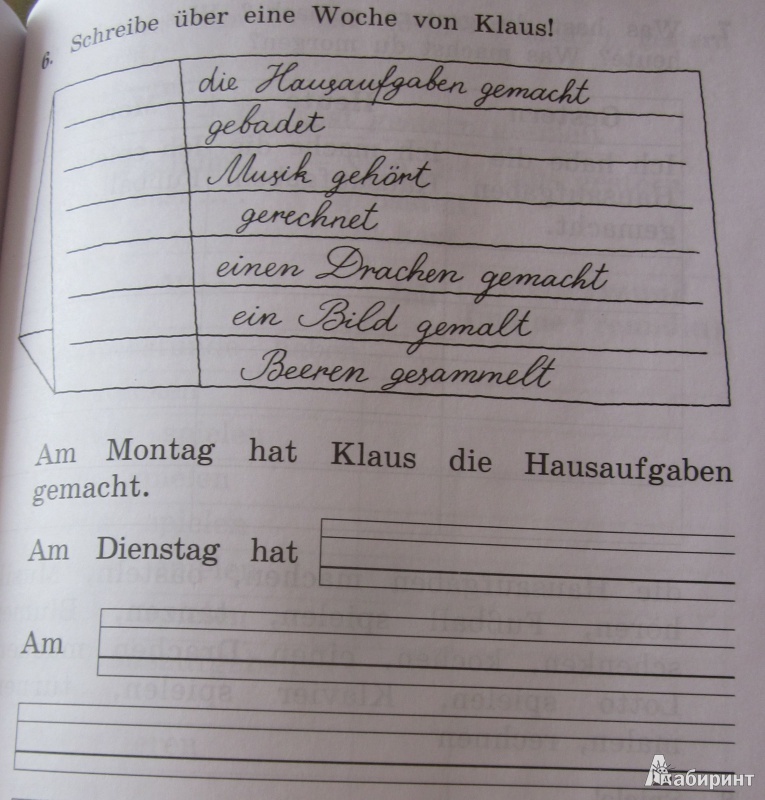 6. Schreibe über eine Woche von Klaus!
die Hausaufgaben gemacht
gebadet
Musik gehört
gerechnet
einen Drachen gemacht
ein Bild gemalt
Beeren gesammelt
Am Montag hat Klaus die Hausaufgaben
gemacht.
Am Dienstag hat
Am
Лабиринт